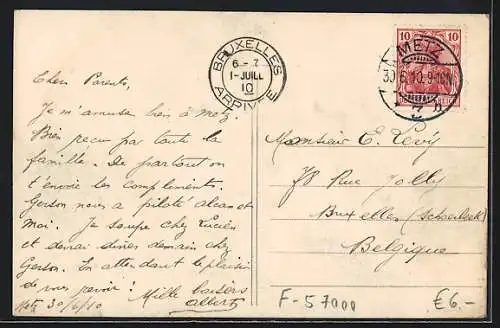 BRUXELLES
6 - 7
1-JUILL
10
ARRIVÉE
10 10
METZ
30.6.10.9-10N.
Chers Parents,
Je m'amuse bien à Metz
Bien reçu par toute la
famille. De partout on
t'envoie les compliments.
Gerson nous a piloté
moi. Je soupe chez Lucien
et demai dîner demain chez
Gerson. En attendant le plaisir
de vous revoir! Mille baisers
Metz 30/6/10 Albert
Monsieur E. Levy
78 Rue Jolly
Bruxelles (Schaerbeek)
Belgique
F-57000
€6.-